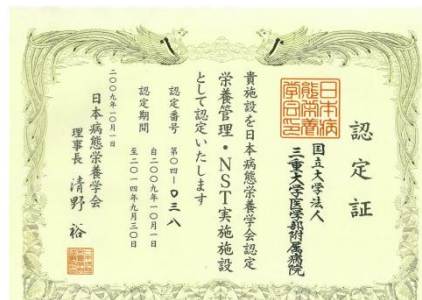 認定証
国立大学法人
三重大学医学部附属病院
貴施設を日本病態栄養学会認定
栄養管理・NST実施施設
として認定いたします
認定番号 第〇四-〇三八
認定期間 自二〇〇九年一〇月一日
至二〇一四年九月三〇日
二〇〇九年一〇月一日
日本病態栄養学会
理事長 清野 裕
日本病
態栄養
学会印